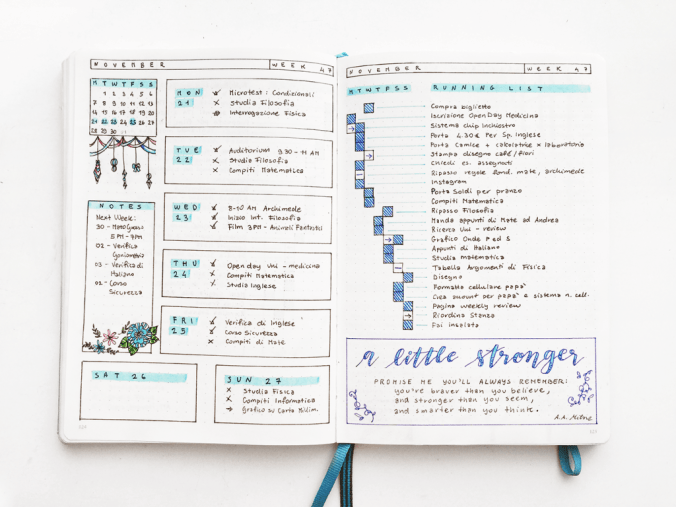 NOVEMBER WEEK 47
M T W T F S S
1 2 3 4 5 6
7 8 9 10 11 12 13
14 15 16 17 18 19 20
21 22 23 24 25 26 27
28 29 30
NOTES
Next Week:
30 -
5 PM - 7PM
02 - Verifica
Goniometria
03 - Verifica di
Italiano
02 - Corso
Sicurezza
MON 21
Microtest: Condizionali
Studia Filosofia
Interrogazione Fisica
TUE 22
Auditorium 9.30 - 11 AM
Studia Filosofia
Compiti Matematica
WED 23
8-10 AM Archimede
Inizio Int. Filosofia
Film 3PM - Animali Fantastici
THU 24
Open day Uni - medicina
Compiti Matematica
Studia Inglese
FRI 25
Verifica di Inglese
Corso Sicurezza
Compiti di Mate
SAT 26
SUN 27
Studia Fisica
Compiti Informatica
Grafico su Carta Millim.
NOVEMBER WEEK 47
M T W T F S S RUNNING LIST
Compra biglietto
Iscrizione OpenDay Medicina
Sistema chip inchiostro
Porta 4.30€ Per Sp. Inglese
Porta Camice + calcolatrice x laboratorio
Stampa disegno café/fiori
Chiedi es. assegnati
Ripasso regole fond. mate, archimede
Instagram
Porta Soldi per pranzo
Compiti Matematica
Ripasso Filosofia
Manda appunti di Mate ad Andrea
Ricerca Uni - review
Grafico Onde P ed S
Appunti di Italiano
Studia matematica
Tabella Argomenti di Fisica
Disegno
Formatta cellulare papà
Crea account per papà e sistema n. cell.
Pagina weekly review
Riordina Stanza
Fai insalata
a little stronger
PROMISE ME YOU'LL ALWAYS REMEMBER:
you're braver than you believe,
and stronger than you seem,
and smarter than you think.
A.A. Milne